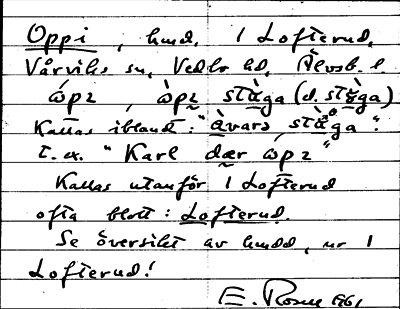 Oppi, hmd. 1 Lofterud,
Vårviks sn, Vedbo hd, Älvsb. l.
ώpı, ὼpı stàga (d. stàga)
Kallas ibland: "àvarə stàga".
t. ex. "Karl dær ώpı"
Kallas utanför 1 Lofterud
ofta blott: Lofterud.
Se översikt av hmdd, nr 1
Lofterud!
E. Rosen 1961